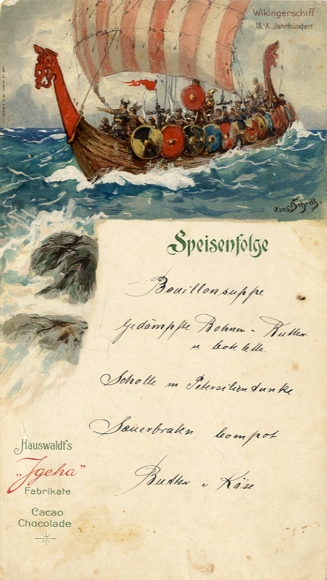 Wikingerschiff
IX. X. Jahrhundert
Hans Bohrdt.
Speisenfolge
Bouillonsuppe
Gedämpfte Bohnen - Butter
u Cotelette
Scholle m Petersilientunke
Sauerbraten Compot
Butter u Käse
Hauswaldt's
"Igeha"
Fabrikate
Cacao
Chocolade